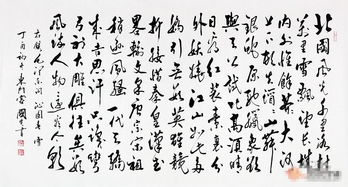 北國風光千里冰封
万里雪飄望長城
内外惟餘莽莽大河
上下頓失滔滔山舞
銀蛇原馳蠟象欲
與天公試比高須晴
日看紅裝素裹分
外妖嬈江山如此多
嬌引無數英雄競
折腰惜秦皇漢武
略輸文采唐宗宋祖
稍遜風騷一代天驕
成吉思汗只識彎
弓射大雕俱往矣數
風流人物還看今朝
沁園春雪
丁酉初冬